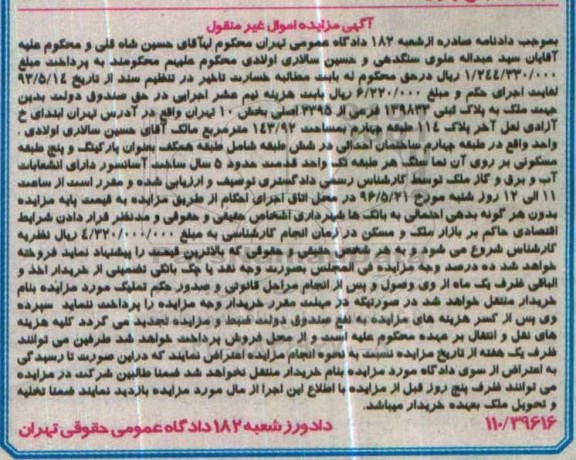 آگهی مزایده اموال غیر منقول
بموجب دادنامه صادره ازشعبه ۱۸۲ دادگاه عمومی تهران محکوم لهآقای حسین شاه قلی و محکوم علیه
آقایان سید عبداله علوی سنگدهی و حسین سالاری اولادی محکوم علیهم محکومند به پرداخت مبلغ
۱/۲۴۴/۳۳۰/۰۰۰ ریال درحق محکوم له بابت مطالبه خسارت تاخیر در تنظیم سند از تاریخ ۹۳/۵/۱۴
لغایت اجرای حکم و مبلغ ۶/۲۲۰/۰۰۰ ریال بابت هزینه نیم عشر اجرایی در حق صندوق دولت بدین
جهت ملک به پلاک ثبتی ۱۳۹۸۳۳ فرعی از ۳۳۹۵ اصلی بخش ۱۰ تهران واقع در آدرس تهران ابتدای خ
آزادی لعل آخر پلاک ۱۱۴ طبقه چهارم بمساحت ۱۴۳/۹۲ مترمربع مالک آقای حسین سالاری اولادی .
واحد واقع در طبقه چهارم ساختمان احداثی در شش طبقه شامل طبقه همکف بعنوان پارکینگ و پنج طبقه
مسکونی بر روی آن نما سنگ هر طبقه تک واحد قدمت حدود ۵ سال ساخت آسانسور دارای انشعابات
آب و برق و گاز ملک توسط کارشناس رسمی دادگستری توصیف و ارزیابی شده و مقرر است از ساعت
۱۱ الی ۱۲ روز شنبه مورخ ۹۶/۵/۲۱ در محل اتاق اجرای احکام از طریق مزایده به قیمت پایه مزایده
بدون هر گونه بدهی احتمالی به بانک ها شهرداری اشخاص حقیقی و حقوقی و مدنظر قرار دادن شرایط
اقتصادی حاکم بر بازار ملک و مسکن در زمان انجام کارشناسی به مبلغ ۴/۳۲۰/۰۰۰/۰۰۰ ریال نظریه
کارشناس شروع می شود و به هر شخص حقیقی و حقوقی که بالاترین قیمت را پیشنهاد نماید فروخته
خواهد شد ده درصد وجه مزایده فی المجلس بصورت وجه نقد یا چک بانکی تضمینی از خریدار اخذ و
الباقی ظرف یک ماه از وی وصول و پس از انجام مراحل قانونی و صدور حکم تملیک مورد مزایده بنام
خریدار منتقل خواهد شد در صورتیکه در مهلت مقرر خریدار وجه مزایده را پرداخت ننماید سپرده
وی پس از کسر هزینه های مزایده به نفع صندوق دولت ضبط و مزایده تجدید می گردد کلیه هزینه
های نقل و انتقال بر عهده محکوم علیه است و از محل فروش پرداخت خواهد شد طرفین می توانند
ظرف یک هفته از تاریخ مزایده نسبت به نحوه انجام مزایده اعتراض نمایند که دراین صورت تا رسیدگی
به اعتراض از سوی دادگاه مورد مزایده بنام خریدار منتقل نخواهد شد ضمنا طالبین شرکت در مزایده
می توانند ظرف پنج روز قبل از مزایده با اطلاع این اجرا از مال مورد مزایده بازدید نمایند ضمنا تخلیه
و تحویل ملک بعهده خریدار میباشد.
۱۱۰/۳۹۶۱۶ دادورز شعبه ۱۸۲ دادگاه عمومی حقوقی تهران